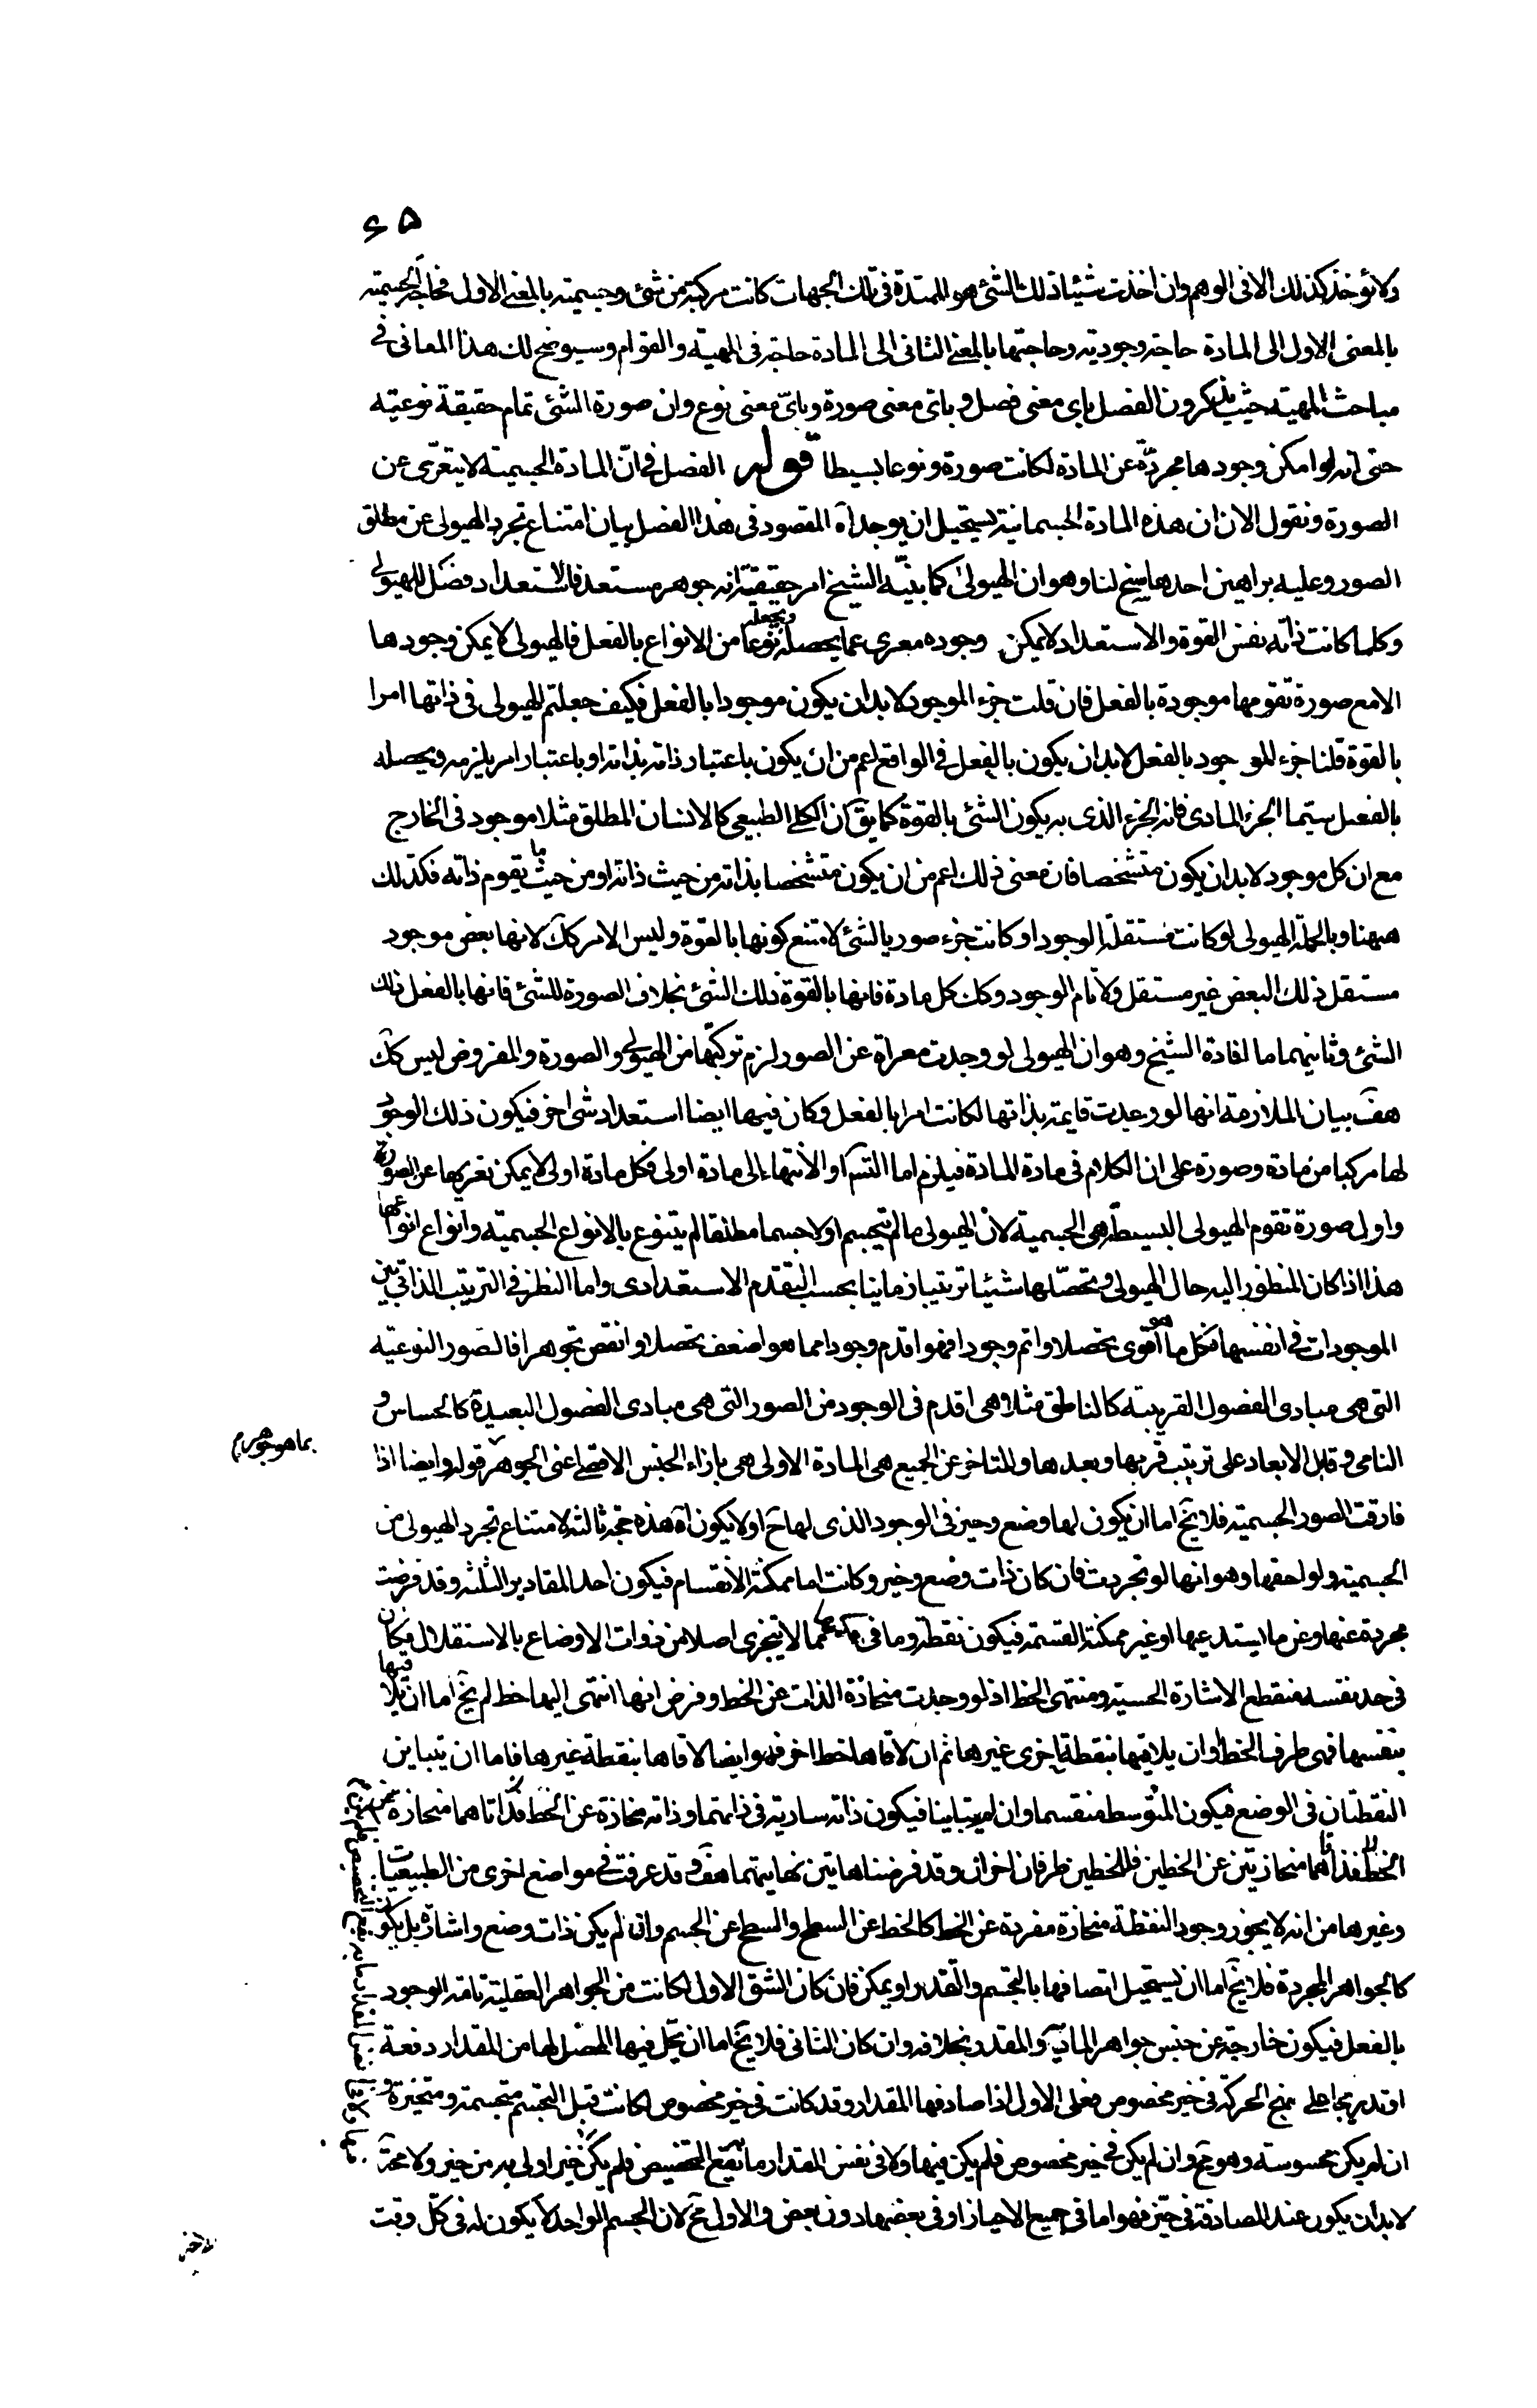 ٦٥
ولا تؤخذ كذلك الا فى الوهم وان اخذت شيئا ذلك الشئ هو الممتدة فى تلك الجهات كانت مركبة من شئ وجسميته بالمعنى الاول فحاجة الجسمية
بالمعنى الاول الى المادة حاجة وجودية وحاجتها بالمعنى الثانى الى المادة حاجة فى المهية والقوام وسيوضح لك هذا المعانى فى
مباحث المهية حيث يذكرون الفصل باى معنى فصل وباى معنى صورة وباىّ معنى نوع وان صورة الشئ تمام حقيقة نوعيته
حتى انه لو امكن وجودها مجردة عن المادة لكانت صورة ونوعا بسيطا قوله الفصل فى انّ المادة الجسمية لا يتعرّى عن
الصورة ونقول الان ان هذه المادة الجسمانية يستحيل ان يوجد آه المقصود فى هذا الفصل بيان امتناع تجرد الهيولى عن مطلق
الصور وعليه براهين احدها سنح لنا وهو ان الهيولى كما بيّنه الشيخ امر حقيقية انه جوهر مستعد فالاستعداد فصل للهيولى
وكلما كانت ذاته نفس القوة والاستعداد لا يمكن وجوده معرى عما يحصله ويجعله نوعا من الانواع بالفعل فالهيولى لا يمكن وجودها
الا مع صورة تقومها موجودة بالفعل فان قلت جزء الموجود لا بد ان يكون موجودا بالفعل فكيف جعلتم الهيولى فى ذاتها امرا
بالقوة قلنا جزء الموجود بالفعل لا بد ان يكون بالفعل فى الواقع اعم من ان يكون باعتبار ذاته بذاته او باعتبار امر يلزمه ويحصله
بالفعل سيما الجزء المادى فانه الجزء الذى به يكون الشئ بالقوة كما يق ان الكلى الطبيعى كالانسان المطلق مثلا موجود فى الخارج
مع ان كل موجود لا بد ان يكون متشخصا فان معنى ذلك اعم من ان يكون متشخصا بذاته من حيث ذاته او من حيث ما يقوم ذاته فكذلك
ههنا وبالجملة الهيولى لو كانت مستقلة الوجود او كانت جزء صوريا لشئ لامتنع كونها بالقوة وليس الامر كك لانها بعض موجود
مستقل ذلك البعض غير مستقل ولا تام الوجود وكان كل مادة فانها بالقوة ذلك الشئ بخلاف الصورة للشئ فانها بالفعل ذلك
الشئ وثانيهما ما افادة الشيخ وهو ان الهيولى لو وجدت معراة عن الصور لزم تركّبها من الهيولى والصورة والمفروض ليس كك
هف بيان الملازمة انها لو وجدت قايمة بذاتها لكانت امرا بالفعل وكان فيها ايضا استعداد شئ اخر فيكون ذلك الوجود
لها مركبا من مادة وصورة على ان الكلام فى مادة المادة فيلزم اما التس او الانتهاء الى مادة اولى فكل مادة اولى لا يمكن تعريها عن الصورة
واولى صورة تقوم الهيولى البسيطة هى الجسمية لان الهيولى ما لم يتجسم اولا جسما مطلقا لم يتنوع بالانواع الجسمية وانواع انواعها
هذا اذا كان المنظور اليه حال الهيولى وتحصّلها شيئا ترتيبا زمانيا بحسب التقدم الاستعدادى واما النظر فى الترتيب الذاتى بين
الموجودات فى انفسها فكل ما هو اقوى تحصلا واتم وجودا فهو اقدم وجودا مما هو اضعف تحصلا وانقص تجوهرا فالصور النوعية
التى هى مبادى الفصول القريبة كالناطق مثلا وهى اقدم فى الوجود من الصور التى هى مبادى الفصول البعيدة كالحساس و
النامى وقابل الابعاد على ترتيب قربها وبعدها والمتاخر عن الجميع هى المادة الاولى هى بازاء الجنس الاقصى اعنى الجوهر قوله وايضا اذا
بما هو جوهر م
فارقت الصور الجسمية فلا يخ اما ان يكون لها وضع وحيز فى الوجود الذى لها ح او لا يكون آه هذه حجة ثالثة لامتناع تجرد الهيولى من
الجسمية ولواحقها وهو انها لو تجردت فان كان ذات وضع وحيز وكانت اما ممكنة الانقسام فيكون احد المقادير الثلثة وقد فرضت
مجردة عنها وعن ما يستدعيها او غير ممكنة القسمة فيكون نقطة وما فى حكمها مما لا يتجزى اصلا من ذوات الاوضاع بالاستقلال وكان
فى حد نفسه منقطع الاشارة الحسية ومنتهى الخط اذ لو وجدت منحازة الذات عن الخط وفرض انها انتهى اليها خط لم يخ اما ان يلاقيها
بنفسها فهى طرف الخط او ان يلاقيها بنقطة اخرى غيرها ثم ان لاقاها خط اخر فهو ايضا لاقاها بنقطة غيرها فاما ان يتباين
النقطتان فى الوضع فيكون المتوسط منقسما وان لم يتباينا فيكون ذاته سارية فى ذاتهما وذاته منحازة عن الخط فذاتاهما منحازة عن
الخط فذاتاهما منحازيتين عن الخطين فللخطين طرفان اخران وقد فرضناهما نهايتين نهايتهما هف وقد عرفت فى مواضع اخرى من الطبيعيات
وغيرها من انه لا يجوز وجود النقطة منحازة مفردة عن الخط كالخط عن السطح والسطح عن الجسم وان لم يكن ذات وضع واشارة بل يكون
كالجواهر المجردة فلا يخ اما ان يستحيل اتصافها بالتجسم والتقدر او يمكن فان كان الشق الاول لكانت من الجواهر العقلية تامة الوجود
بالفعل فيكون خارجة عن جنس جواهر المادية والمقدر بخلافه وان كان الثانى فلا يخ اما ان يحل فيها المحصل لها من المقدار دفعة
او تدريجا على نهج الحركة فى حيز مخصوص فعلى الاول اذا صادفها المقدار وقد كانت فى حيز مخصوص لكانت قبل التجسم متجسمة ومتحيزة
ان لم يكن محسوسة وهو مح وان لم يكن فى حيز مخصوص فلم يكن فيها ولا فى نفس المقدار ما يقع التخصيص فلم يكن حيز اولى به من حيز ولا محة
لا بد ان يكون عند المصادفة فى حيّز فهو اما فى جميع الاحياز او فى بعضها دون بعض والاول مح لان الجسم الواحد لا يكون له فى كل وقت